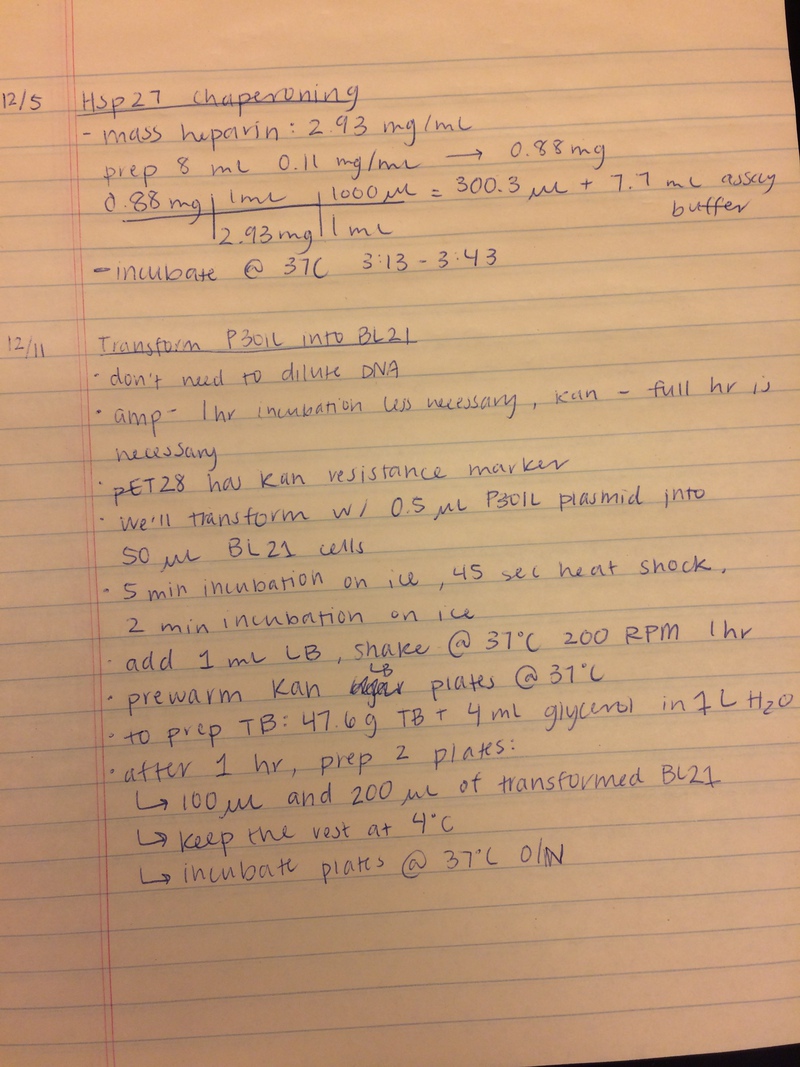 12/5 Hsp27 Chaperoning
- mass heparin: 2.93 mg/mL
prep 8 mL 0.11 mg/mL → 0.88mg
0.88 mg | 1mL | 1000 µL = 300.3 µL + 7.7 mL assay
buffer
| 2.93mg | 1 mL
- incubate @ 37C 3:13 - 3:43
12/11 Transform P301L into BL21
· don't need to dilute DNA
· amp - 1hr incubation less necessary, kan - full hr is
necessary
· pET28 has Kan resistance marker
· we'll transform w/ 0.5 µL P301L plasmid into
50 µL BL21 cells
· 5 min incubation on ice, 45 sec heat shock,
2 min incubation on ice
· add 1 mL LB, shake @ 37°C 200 RPM 1hr
· prewarm Kan LB plates @ 37°C
· to prep TB: 47.6g TB + 4 mL glycerol in 1 L H2O
· after 1 hr, prep 2 plates:
↳ 100 µL and 200 µL of transformed BL21
↳ keep the rest at 4°C
↳ incubate plates @ 37°C O/N